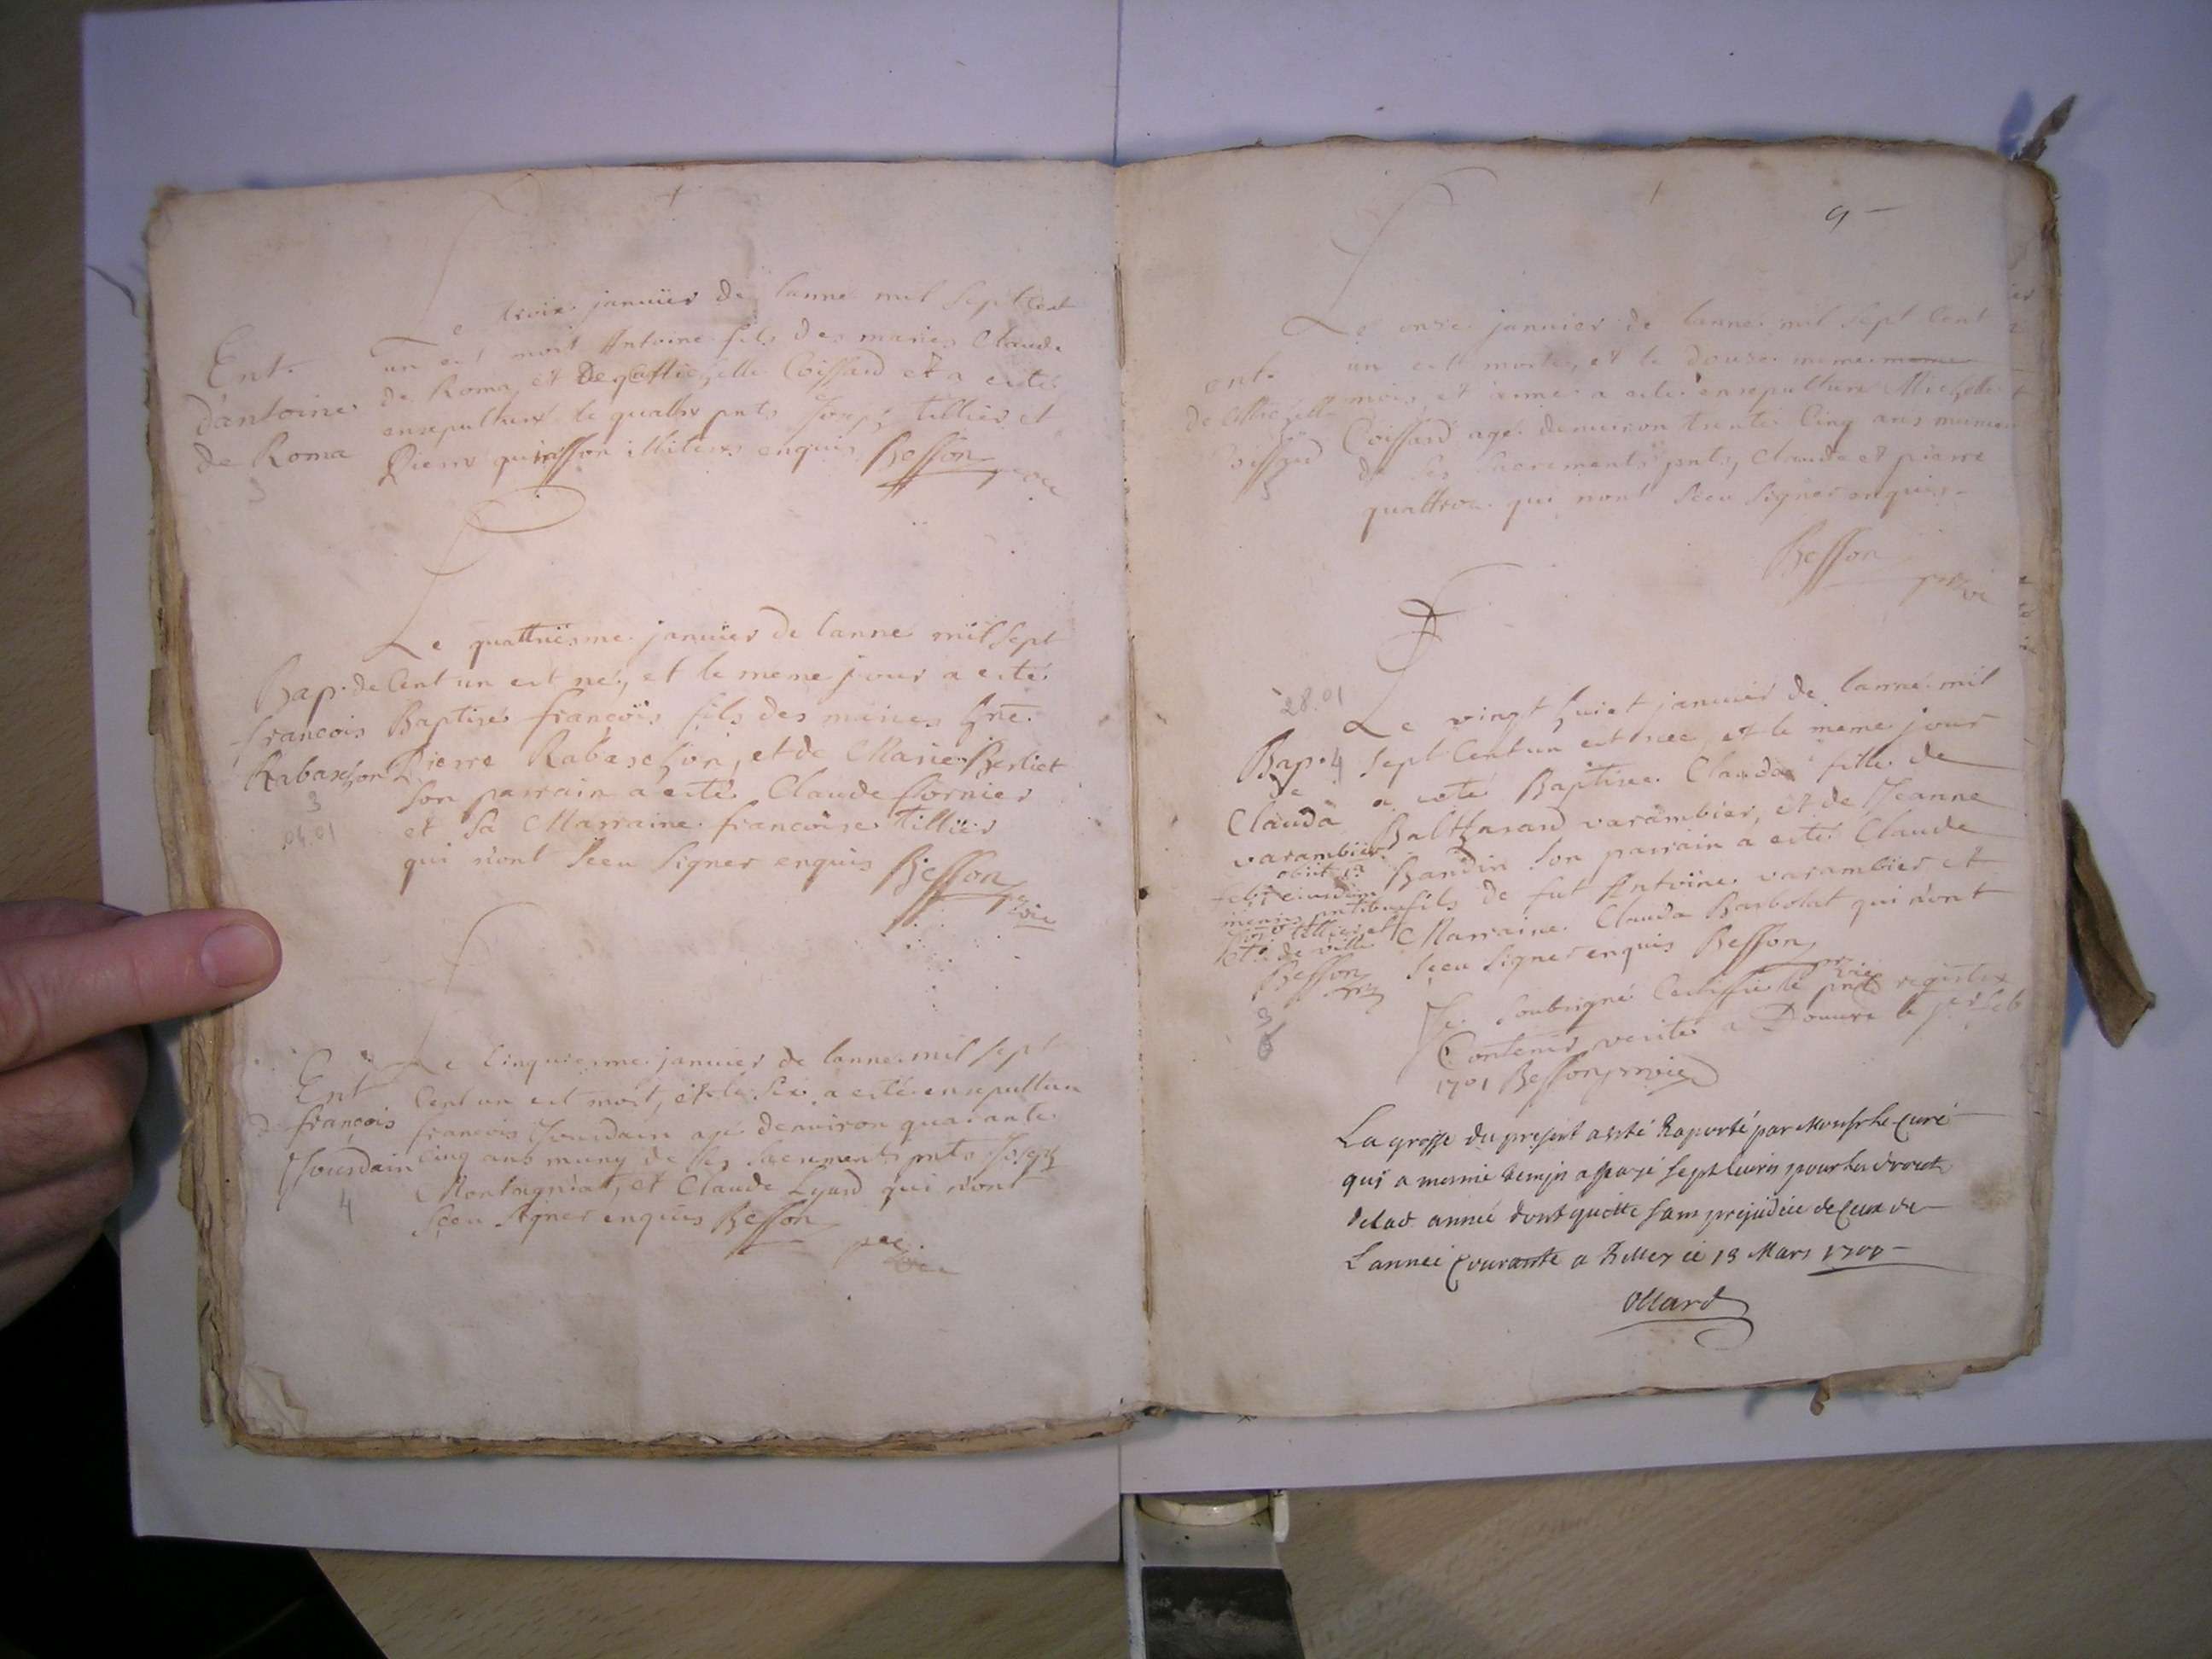 Le trois januier de lanné mil sept Cent
un est mort Antoine fils des mariés Claude
de Roma, et De Michelle Coissard et a esté
ensepulturé le quattre pnts Joseph tillier et
Pierre illiteres enquis Besson
Ent.
d'antoine
de Roma
3
Le quattriesme januier de lanné mil sept
Cent un est né, et le meme jour a esté
Baptisé francois fils des mariés hnē.
Pierre Rabaschon, et de Marie Berliet
Son parrain a esté Claude Cornier
et Sa Marraine francoise tillier
qui n'ont Sceu Signer enquis Besson
Bap. de
francois
Rabaschon
3
04.01
Le Cinquiesme januier de lanne mil sept
Cent un est mort, et le Six a esté ensepulturé
francois Jourdain agé denuiron quarante
Cinq ans muny de Ses Sacrements pnts Joseph
Montagniat, et Claude Lyard qui n'ont
Sceu Signer enquis Besson
Ent
d francois
Jourdain
4
9
Le onze januier de lanne mil sept Cent
un est morte, et le douze meme
mois et anne a esté ensepulturé Michelle
Coissard agé denuiron trente Cinq ans munie
de Ses Sacrements pnts, Claude et pierre
quattroz qui nont Sceu Signer enquis
Besson
ent.
de Michelle
Coissard
5
Le vingt huict januier de lanné mil
Sept Cent un est neé, et le meme jour
a esté Baptiseé Clauda fille de
Balthasard varambier, et de Jeanne
Bandin Son parrain a esté Claude
fils de fut Antoine varambier et
Marraine Clauda Barbolat qui n'ont
Sceu Signer enquis Besson
28.01
Bap. 4
de
Clauda
varambier
obiit 13
eiusdem
tillier et
de ville
Besson
Je Soubsigné Certifie le pnt registre
Contenir verité a Douure le per feb
1701 Besson
La grosse du present a esté Raporté par Monsr le Curé
qui a mesme temps a payé sept liures pour les droits
de lad année dont quitte sans prejudice de ceux de
Lannée Courante a Belley ce 13 Mars 1701